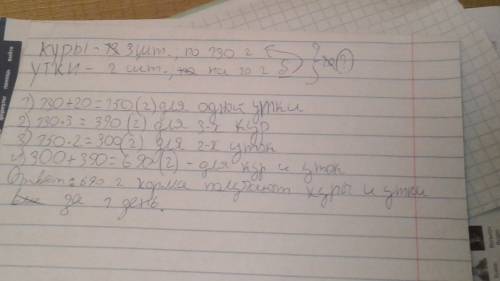 куры - 3 шт., по 130 г
утки - 2 шт., на 20 г б
1) 130+20=150 (г) для одной утки
2) 130·3=390 (г) для 3-х кур
3) 150·2=300 (г) для 2-х уток
4) 300+390=690 (г) - для кур и уток
Ответ: 690 г корма получают куры и утки
за 1 день.